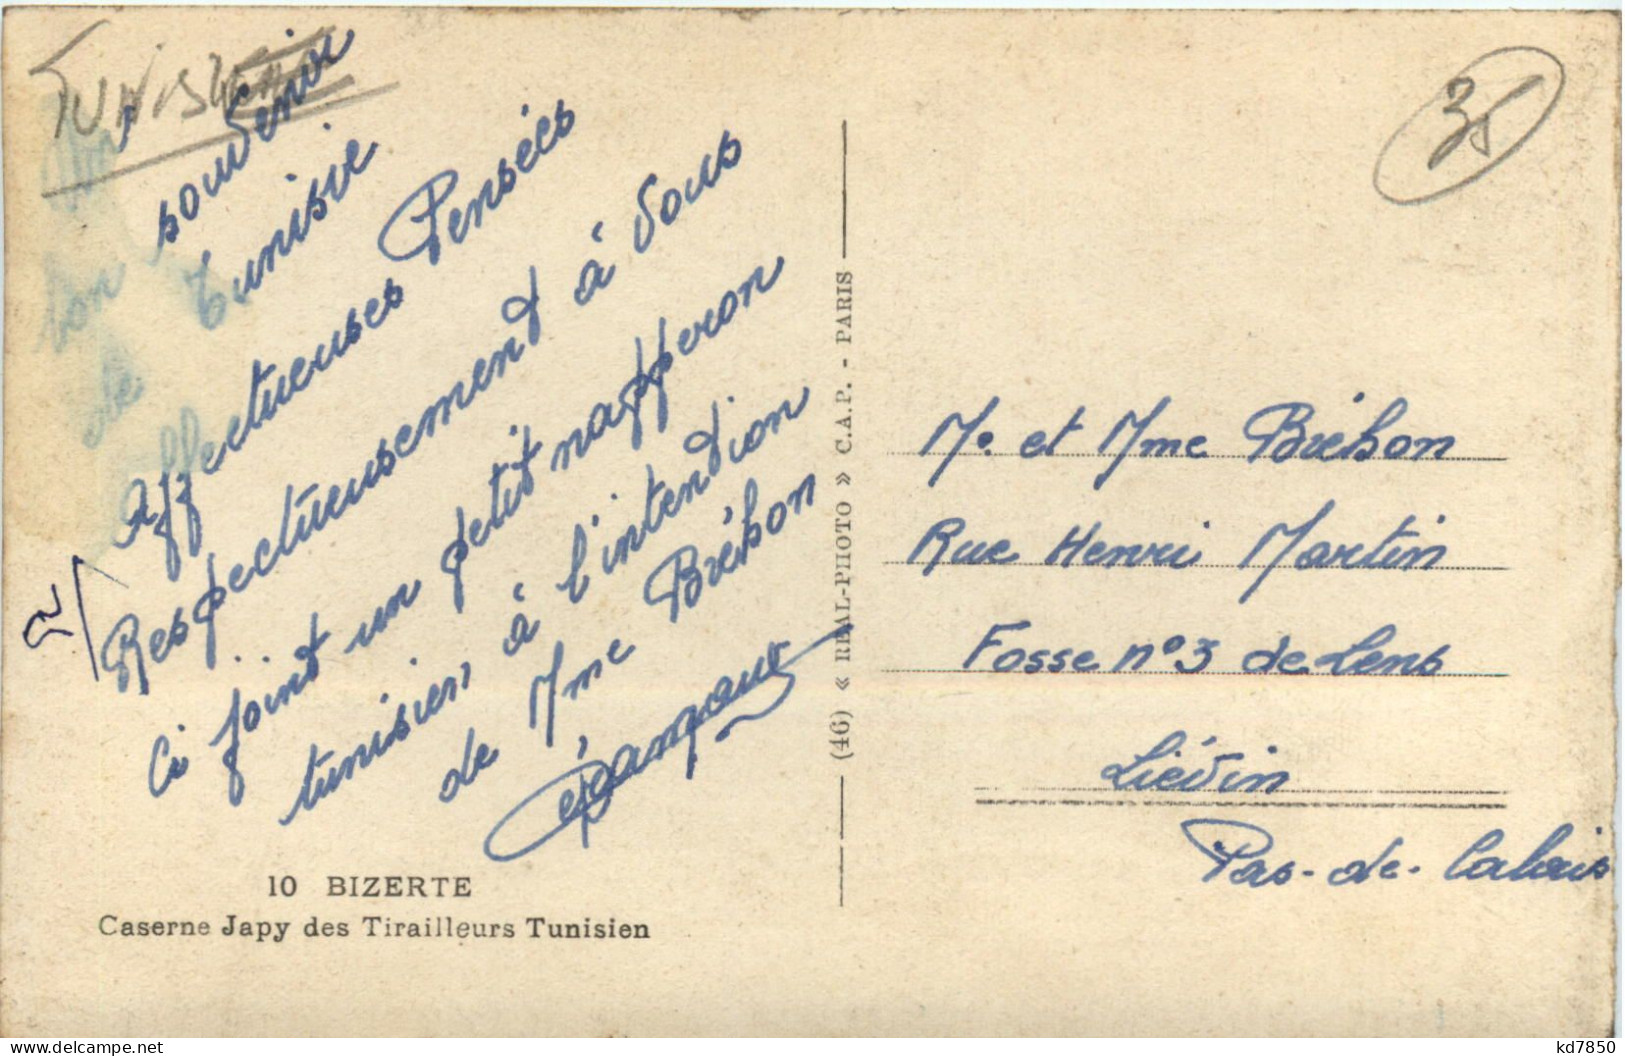 TUNISIE
35
Un
bon souvenir
de Tunisie
Affectueuses Pensées
Respectueusement à vous
Ci joint un petit napperon
tunisien à l'intention
de Mme Bréhon
2/
10 BIZERTE
Caserne Japy des Tirailleurs Tunisien
(46) « REAL-PHOTO » C.A.P. - PARIS
Mr et Mme Bréhon
Rue Henri Martin
Fosse n°3 de Lens
Liévin
Pas-de-Calais
kd7850